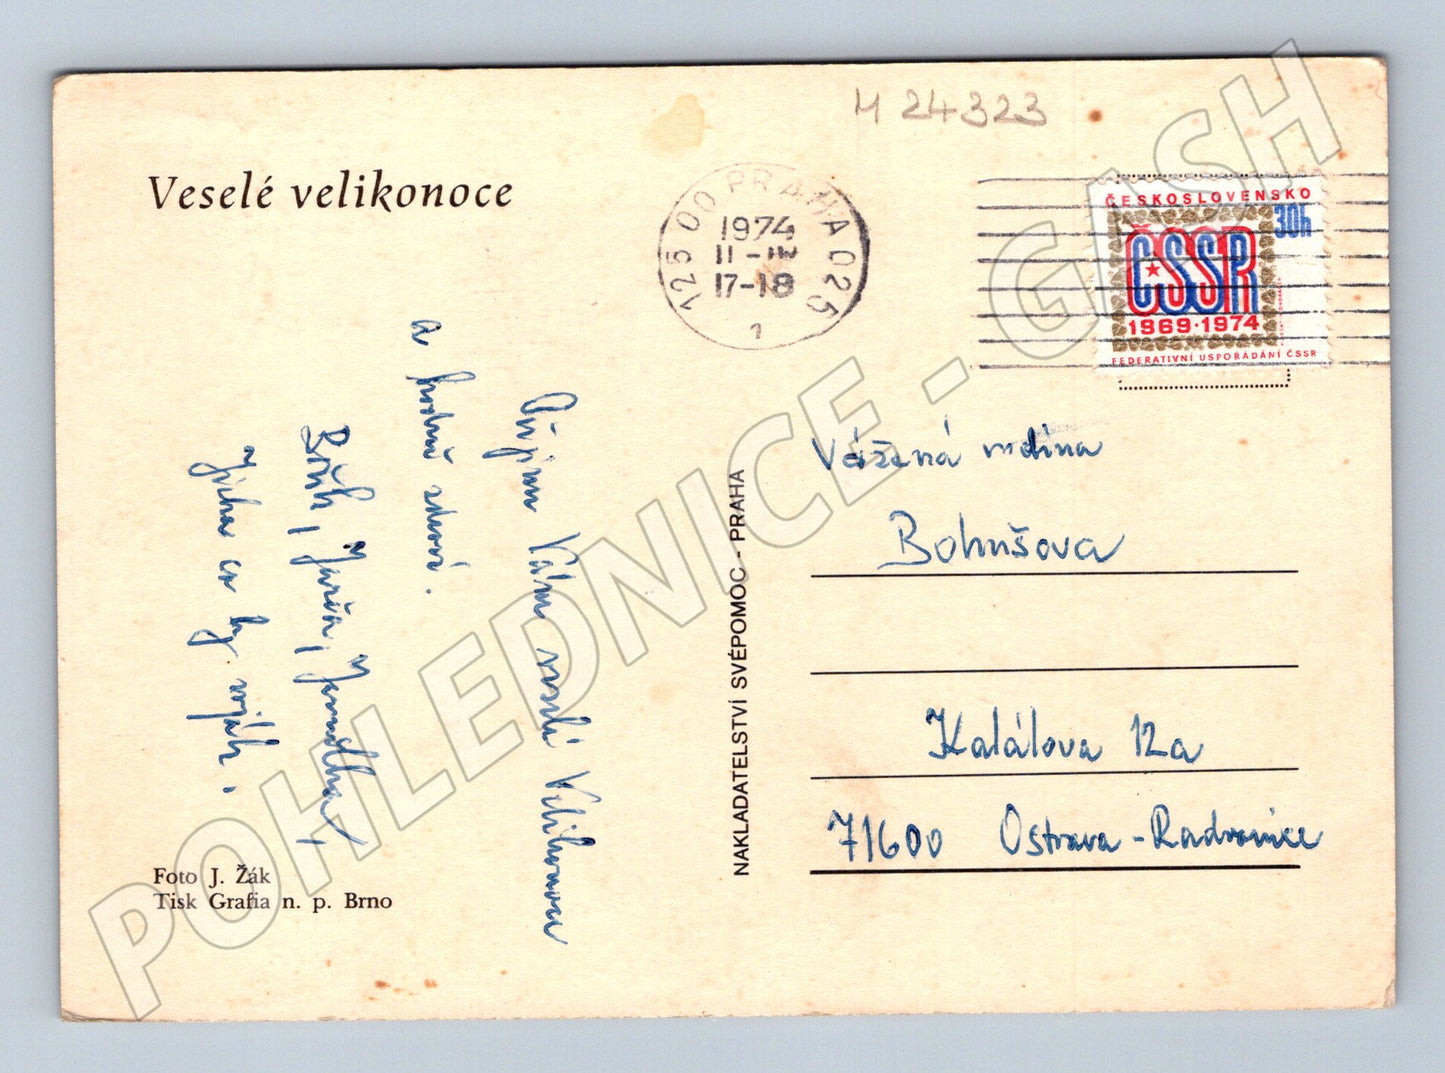 M 24323
Veselé velikonoce
125 00 PRAHA 025
1974
17-18
1
ČESKOSLOVENSKO
30h
ČSSR
1969·1974
FEDERATIVNÍ USPOŘÁDÁNÍ ČSSR
Přejeme Vám veselé Velikonoce
a hodně zdraví.
Jarča,
co by voják.
NAKLADATELSTVÍ SVÉPOMOC - PRAHA
Vážená rodina
Bohušova
Kalálova 12a
71600 Ostrava-Radvanice
Foto J. Žák
Tisk Grafia n. p. Brno
POHLEDNICE - GASH